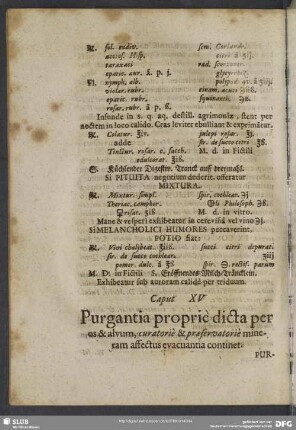 ℞. fol. endiv.
acetos. Hisp.
taraxaci
epatic. aur. ā. p. j.
Fl. nymph. alb.
violar. rubr.
epatic. rubr.
rosar. rubr. ā p. ß.
sem.
rad. scorzoner.
glycyrrhiz.
polypod.
cinam. acuti
squinanth. ʒß.
Infunde in s. q. aq. destill. agrimoniæ, stent per
noctem in loco calido. Cras leviter ebulliant & exprimãtur.
℞. Colatur. ℥iv. julepi rosar. ℥j.
adde sir. de succo citri ℥ß.
Tinctur. rosar. c. succh. M. d. in Fictili
edulcorat. ℥iß.
S. Kühlender Digestiv-Tranck auff dreymahl.
Si PITUITA negotium dederit, offeratur
MIXTURA.
℞. Mixtur. simpl. spir. cochlear. ʒj
Theriac. camphor. Philosoph. ʒß.
M. d. in vitro.
Mane & vesperi exhibeatur in cerevisiâ vel vino ʒj.
Si MELANCHOLICI HUMORES peccaverint,
POTIO fiat:
℞. Vini chalybeat. ℥iiß. succi citri depurat.
sir. de succo cochlear. ʒiij
pomor. dulc. ā ℥ß rectif. parùm
M. D. in Fictili S. Eröffnendes Milch-Tränckein.
Exhibeatur sub auroram calidè per triduum.
Caput XV
Purgantia propriè dicta per
os & alvum, curatoriè & præservatoriè mine-
ram affectus evacuantia continet.
PUR-
SLUB
DFG